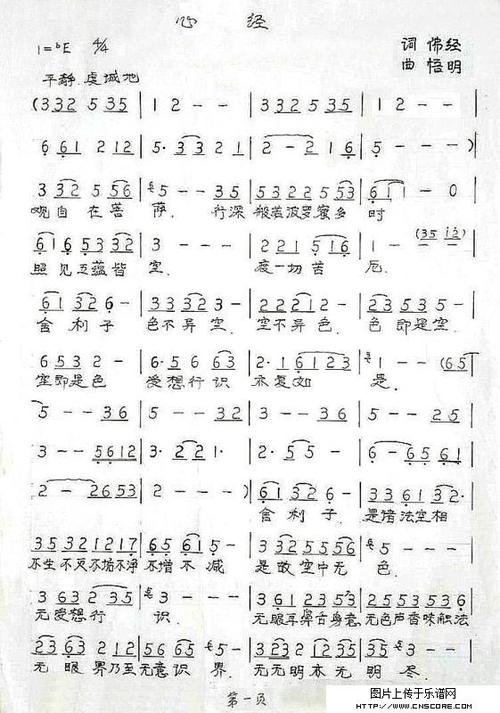 心 经
1=ᵇE 4/4
词 佛经
曲 悟明
平静.虔诚地
(3 32 5 35 | 1 2 - - | 3 32 5 35 | 1 2 - - |
6 61 2 12 | 5· 33 21 | 2 - 2 16 | 5 - - -) |
3 32 5 56 | 5 - - 35 | 5322 5 53 | 61 1 - 0 |
观自在菩 萨. 行深般若波罗蜜多 时
6165332 | 3 - - - | 221 516 | 1 - (35 12) |
照见五蕴皆 空. 度一切苦 厄.
61 32 6 - | 33323 - | 22212 - | 3535 - |
舍利子 色不异空. 空不异色. 色即是空.
6532 - | 6·56 63 | 2·16123 | 1 - - (65 |
空即是色 受想行识 亦复如 是.
5 - - 36 | 5 - - 32 | 3 - - 35 | 5 - - 25 |
3 - - 5612 | 3· 221· | 2· 55 - | 6 - 6561 |
2 - 2653 | 2 - - -) | 61 32 6 - | 65 61 32· |
舍利子. 是诸法空相
35321217 | 65 61 5 · | 3 32 5556 | 5 - - - |
不生不灭不垢不净 不增不减 是故空中无 色.
3 632 35 | 3 - - - | 36123 53 | 25535356 |
无受想行 识. 无眼耳鼻舌身意 无色声香味触法
6332332 | 56 65 5 - | 3 32 2123 | 5 - - - |
无眼界乃至无意识界. 无无明亦无明 尽.
第一页
图片上传于乐谱网
HTTP://WWW.CNSCORE.COM